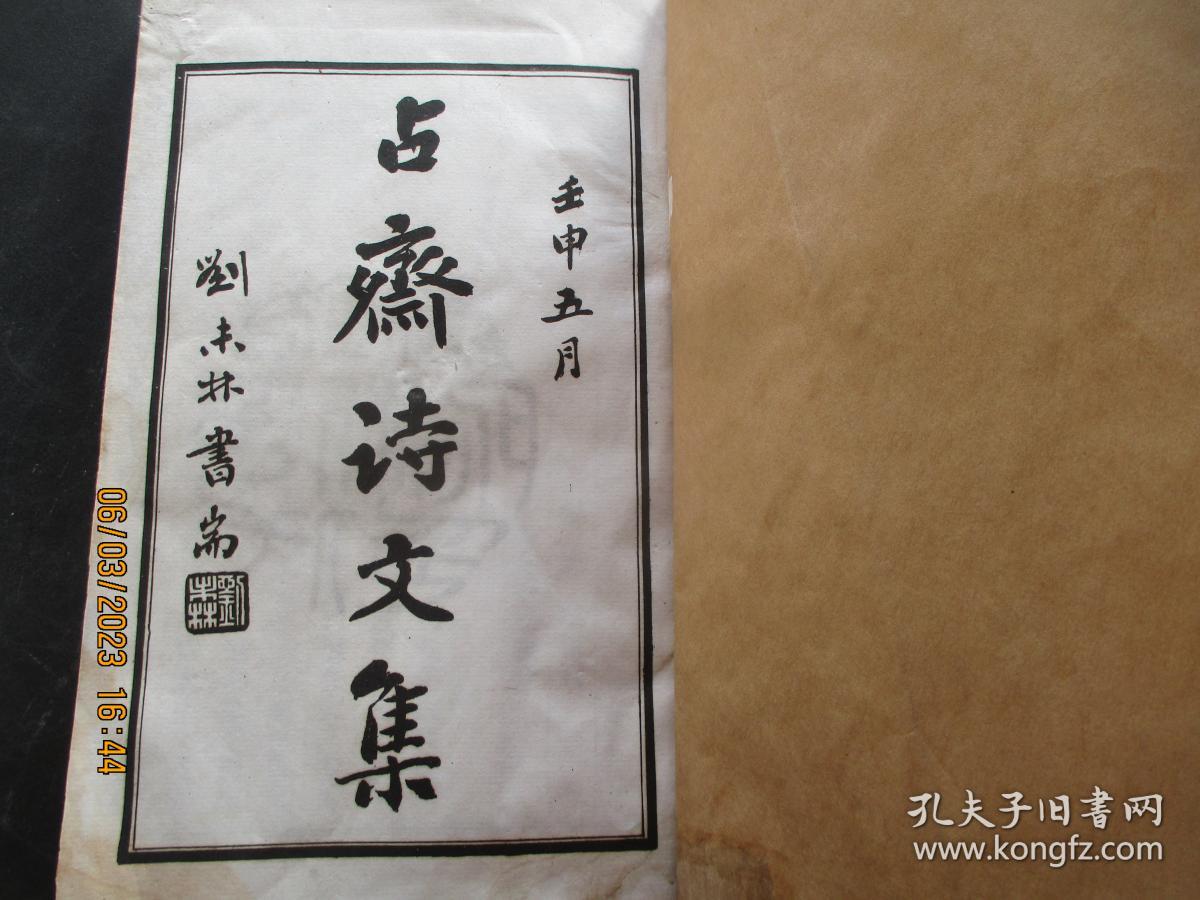 壬申五月
占齋诗文集
劉未林書耑
劉未林
06/03/2023 16:44
孔夫子旧書网
www.kongfz.com